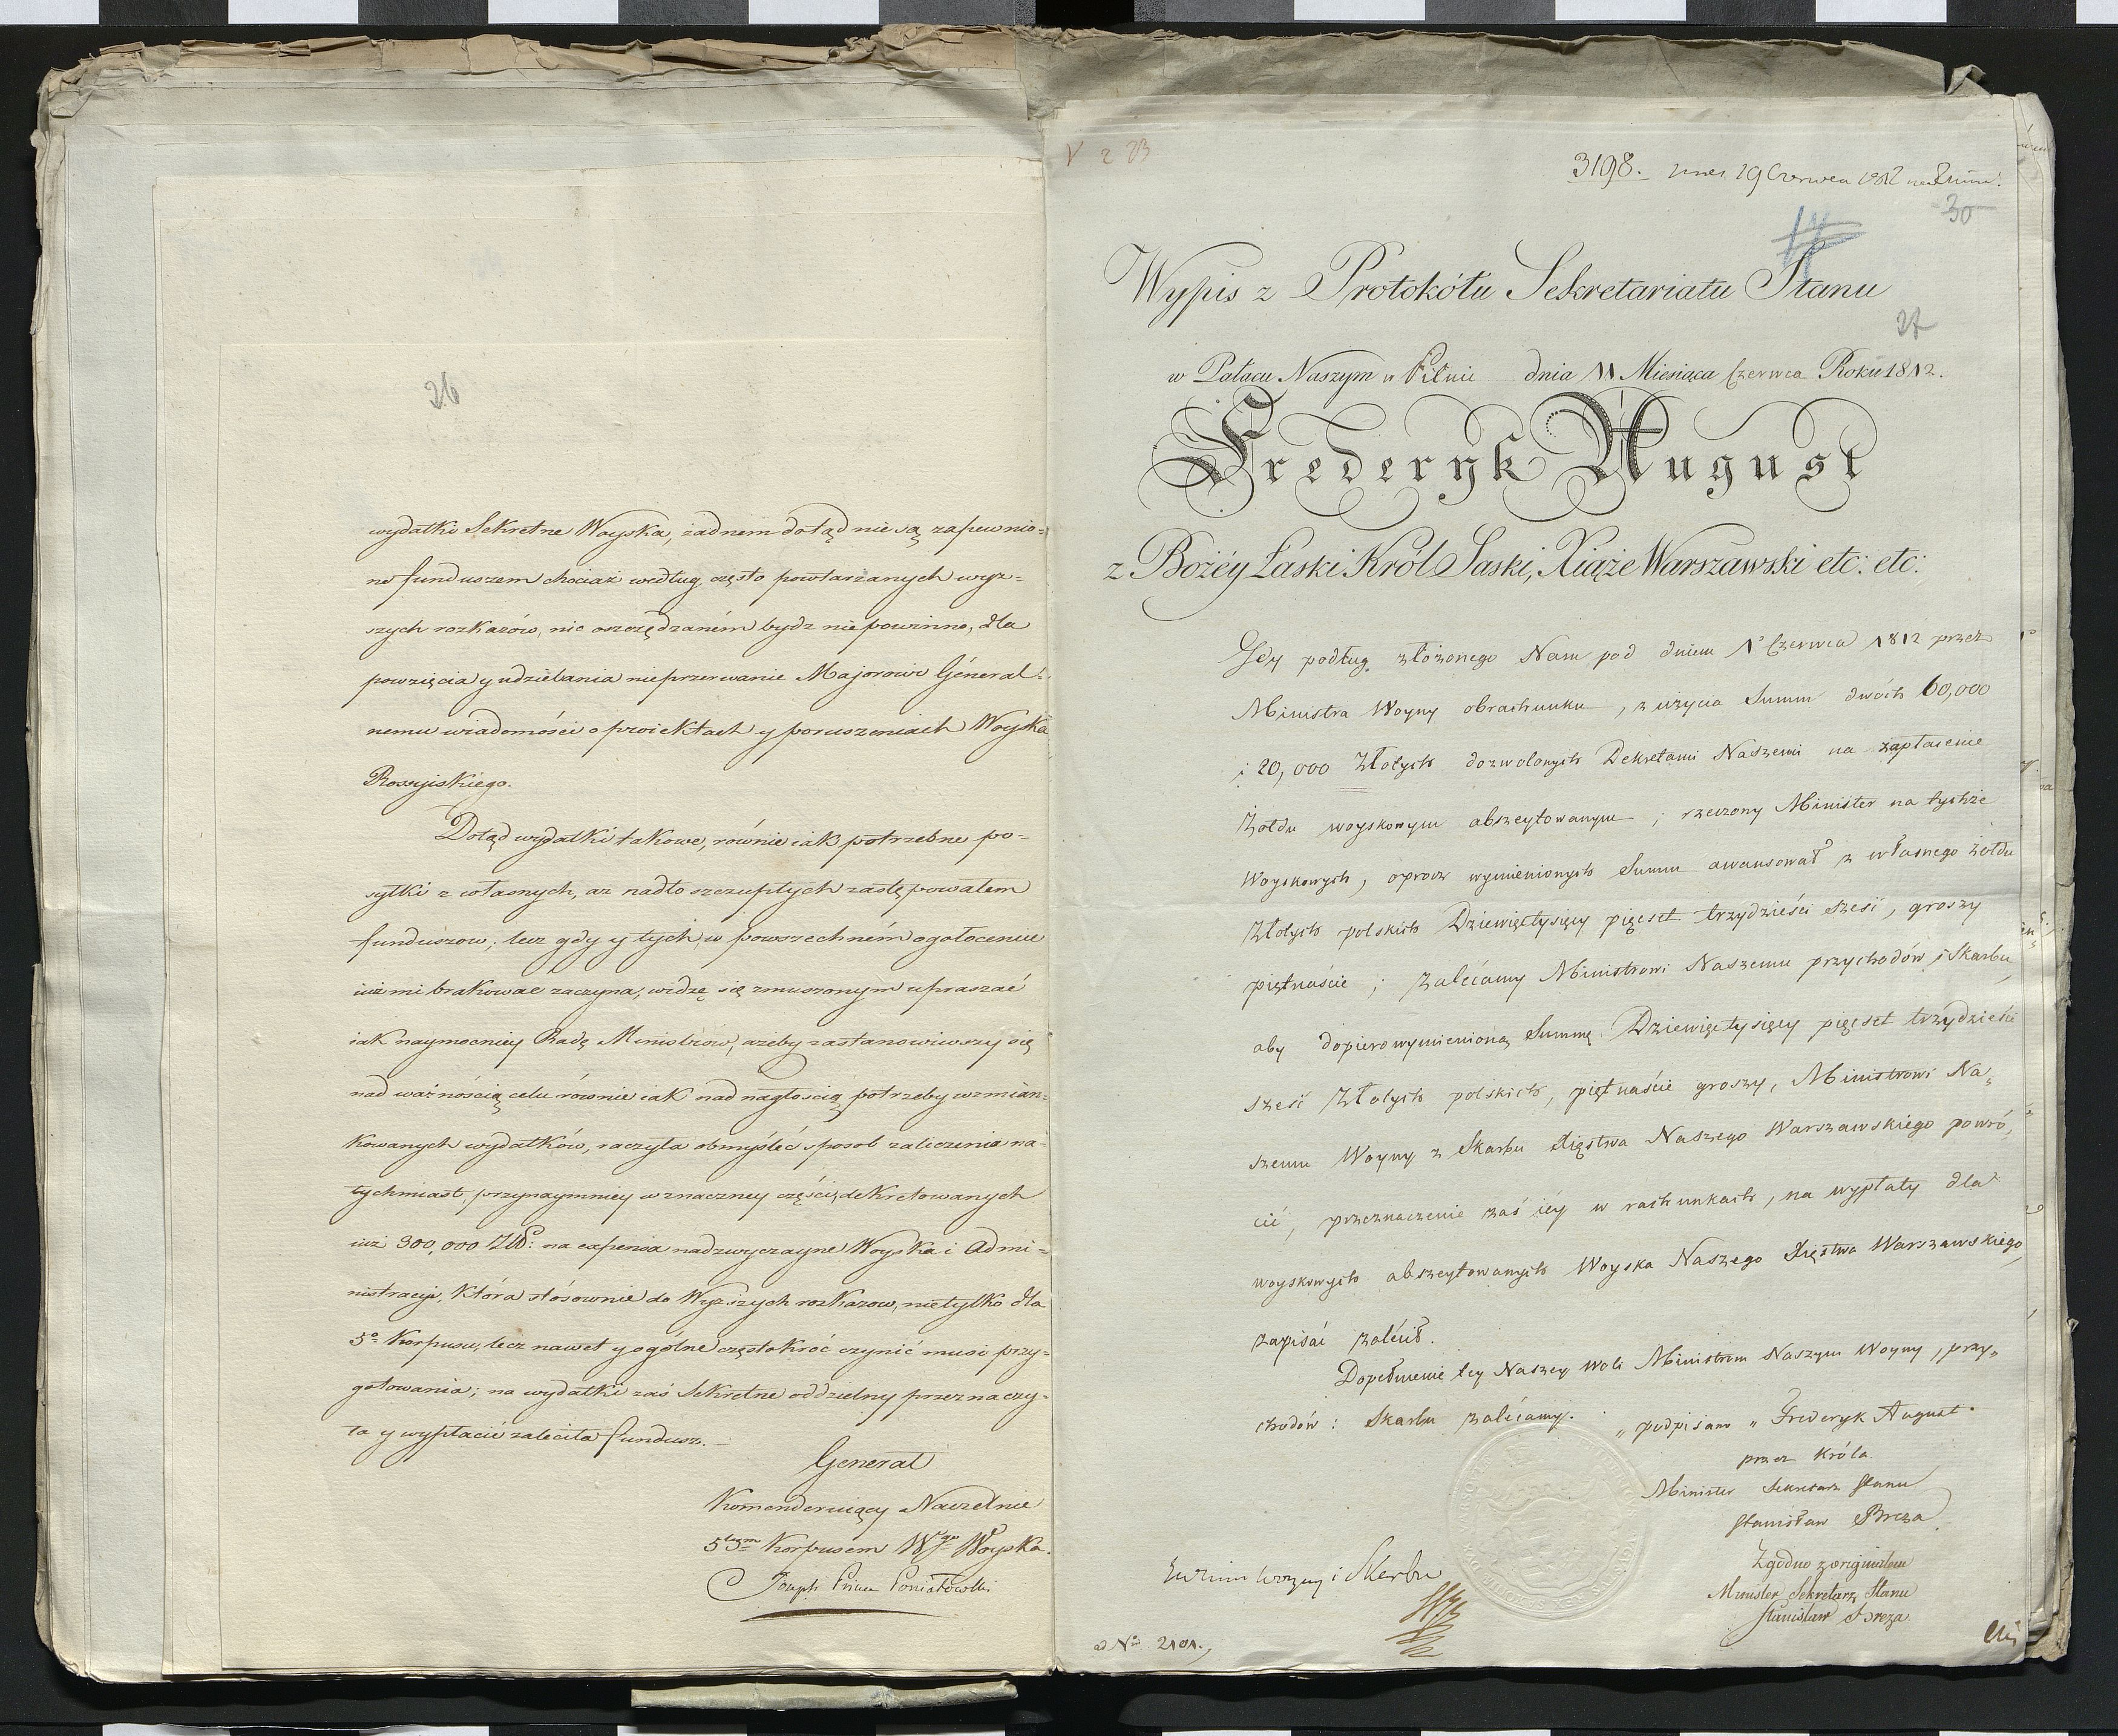 26
wydatki Sekretne Woyska, żadnem dotąd nie są zapewnio=
ne funduszem chociaż według często powtarzanych wyż=
szych rozkazów, nic oszczędzaném bydz niepowinno, dla
powzięcia y udzielania nieprzerwanie Majorowi Général=
nemu wiadomości o proiektach y poruszeniach Woyska
Rossyiskiego.
Dotąd wydatki takowe, równie iak potrzebne po=
syłki z własnych, az nadto szczupłych zastępowałem
funduszow; lecz gdy y tych, w powszechném ogołoceniu
iuż mi brakować zaczyna, widzę się zmuszonym upraszać
iak naymocniey Radę Ministrów, ażeby zastanowiwszy się
nad ważnością celu równie iak nad nagłością potrzeby wzmian=
kowanych wydatków, raczyła obmyśleć sposob zaliczenia na=
tychmiast, przynaymniey w znaczney części, dekretowanych
iuż 300,000 Złp: na expensa nadzwyczayne Woyska i Admi=
nistracyi, Która stósownie do Wyższych rozkazow, nietylko dla
5º Korpusu, lecz nawet y ogólne częstokróć czynić musi przy=
gotowania; na wydatki zaś Sekretne oddzielny przeznaczy=
ła y wypłacić zaleciła fundusz.
Generał
Komenderuiący Naczelnie
5tym Korpusem Wgo Woyska.
Joseph Prince Poniatowski
V 2 23
3198. 19 Czerwca 1812
30
14
27
Wypis z Protokółu Sekretariatu Stanu
w Pałacu Naszym w Pilnic dnia 11 Miesiąca Czerwca Roku 1812.
Frederyk August
z Bożéy Łaski Król Saski, Xiąże Warszawski etc: etc:
Gdy podług złożonego Nam pod dniem 1º Czerwca 1812 przez
Ministra Woyny obrachunku, z użycia Summ dwóch 60,000
i 20,000 Złotych dozwolonych Dekretami Naszemi na zapłacenie
Żołdu woyskowym abszeytowanym; rzeczony Minister na tychże
Woyskowych, oprocz wymienionych Summ awansował z własnego żołdu
Złotych polskich Dziewięćtysięcy pięćset trzydzieści sześć, groszy
piętnaście; Zalécamy Ministrowi Naszemu przychodów i Skarbu,
aby dopiero wymienioną Summę Dziewięćtysięcy pięćset trzydzieści
sześć Złotych polskich, piętnaście groszy, Ministrowi Na„
szemu Woyny z Skarbu Xięstwa Naszego Warszawskiego powró„
cić, przeznaczenie zaś iéy w rachunkach, na wypłaty dla
woyskowych abszeytowanych Woyska Naszego Xięstwa Warszawskiego,
zapisać zalécił.
Dopełnienie tey Naszey Woli Ministrom Naszym Woyny, przy„
chodów i Skarbu zalécamy. „podpisano„ Frederyk August.
przez Króla
Minister Sekretarz Stanu
Stanisław Breza
Zgodno z oryginałem
Minister Sekretarz Stanu
Stanisław Breza
Woyny i Skarbu
Nº 2101.